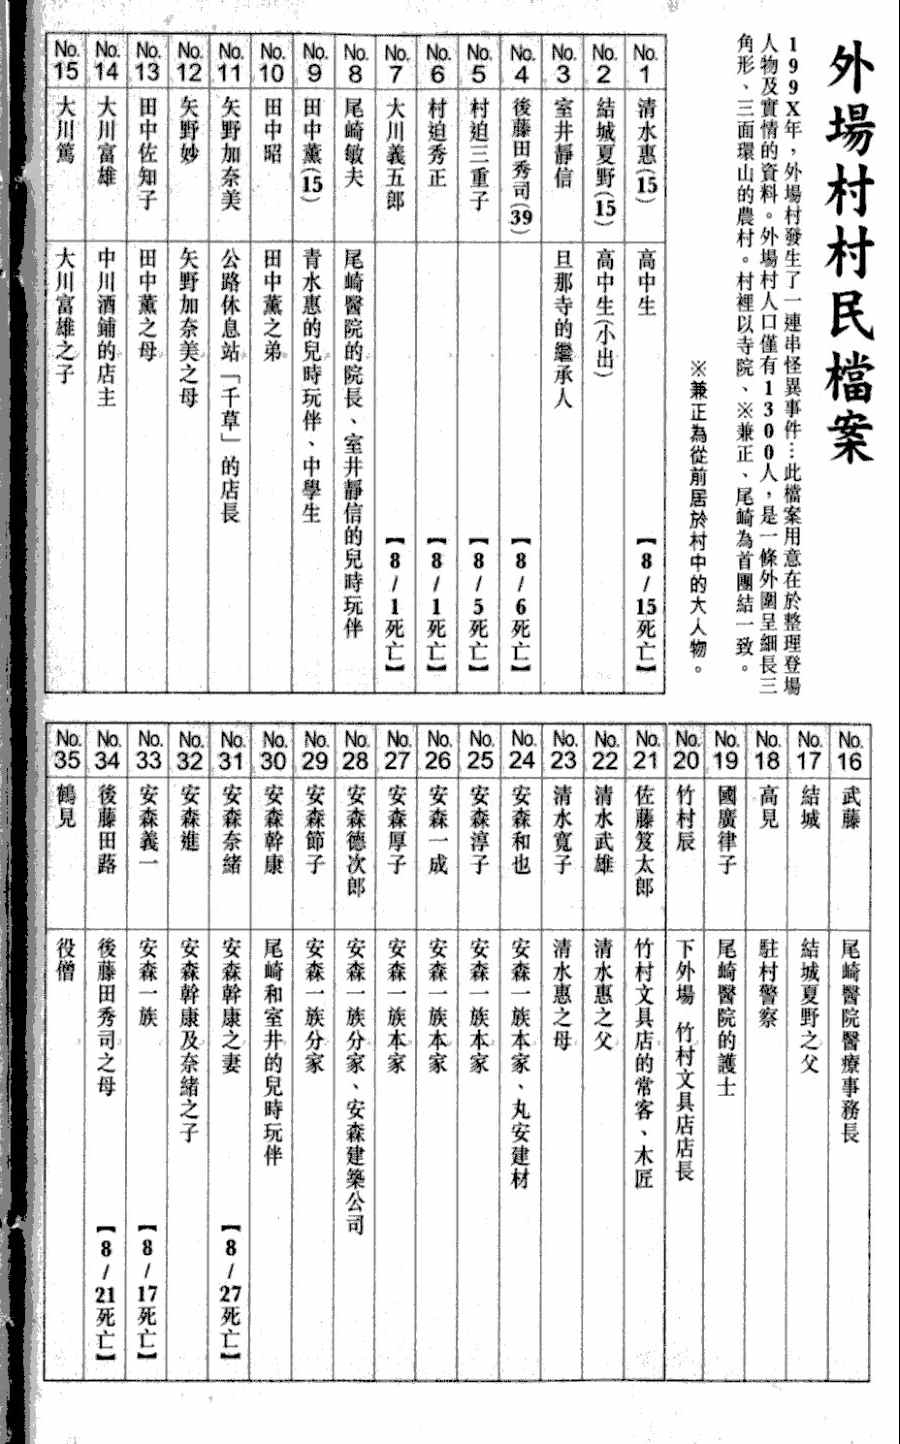 外場村村民檔案
199X年，外場村發生了一連串怪異事件…此檔案用意在於整理登場
人物及實情的資料。外場村人口僅有1300人，是一條外圍呈細長三
角形、三面環山的農村。村裡以寺院、※兼正、尾崎為首團結一致。
※兼正為從前居於村中的大人物。
No.1 清水惠(15) 高中生 【8/15死亡】
No.2 結城夏野(15) 高中生(小出)
No.3 室井靜信 旦那寺的繼承人
No.4 後藤田秀司(39) 【8/6死亡】
No.5 村迫三重子 【8/5死亡】
No.6 村迫秀正 【8/1死亡】
No.7 大川義五郎 【8/1死亡】
No.8 尾崎敏夫 尾崎醫院的院長、室井靜信的兒時玩伴
No.9 田中薰(15) 青水惠的兒時玩伴、中學生
No.10 田中昭 田中薰之弟
No.11 矢野加奈美 公路休息站「千草」的店長
No.12 矢野妙 矢野加奈美之母
No.13 田中佐知子 田中薰之母
No.14 大川富雄 中川酒鋪的店主
No.15 大川篤 大川富雄之子
No.16 武藤 尾崎醫院醫療事務長
No.17 結城 結城夏野之父
No.18 高見 駐村警察
No.19 國廣律子 尾崎醫院的護士
No.20 竹村辰 下外場 竹村文具店店長
No.21 佐藤笈太郎 竹村文具店的常客、木匠
No.22 清水武雄 清水惠之父
No.23 清水寬子 清水惠之母
No.24 安森和也 安森一族本家、丸安建材
No.25 安森淳子 安森一族本家
No.26 安森一成 安森一族本家
No.27 安森厚子 安森一族本家
No.28 安森德次郎 安森一族分家、安森建築公司
No.29 安森節子 安森一族分家
No.30 安森幹康 尾崎和室井的兒時玩伴
No.31 安森奈緒 安森幹康之妻 【8/27死亡】
No.32 安森進 安森幹康及奈緒之子
No.33 安森義一 安森一族 【8/17死亡】
No.34 後藤田蕗 後藤田秀司之母 【8/21死亡】
No.35 鶴見 役僧